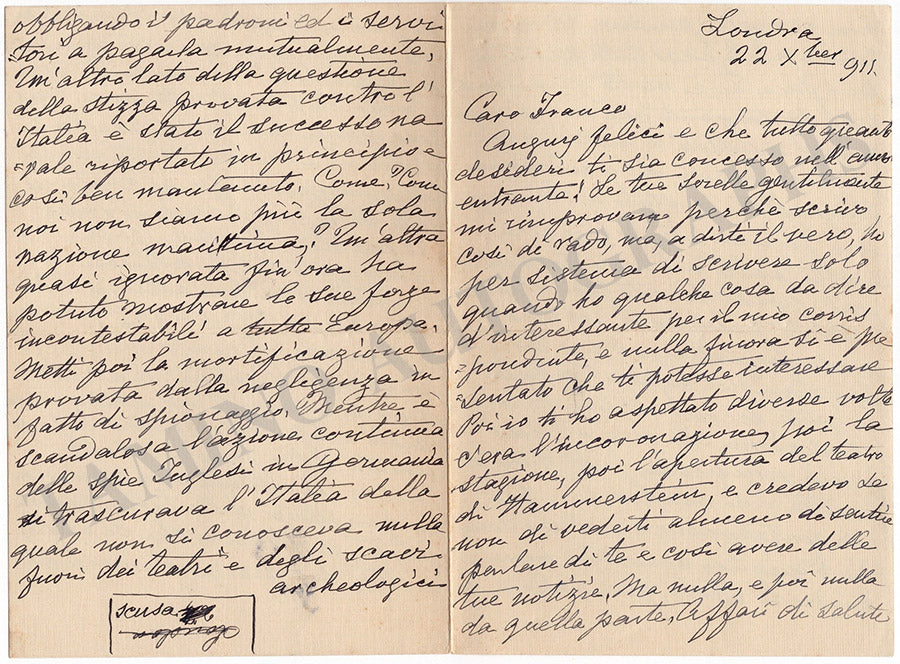 Londra
22 Xbre 911.
Caro Franco
Augurj felici e che tutto quanto
desideri ti sia concesso nell'anno
entrante! Le tue sorelle gentilmente
mi rimproverano perchè scrivo
così di rado, ma, a dirti il vero, ho
per sistema di scrivere solo
quando ho qualche cosa da dire
d'interessante per il mio corris
=pondente, e nulla finora si è pre
=sentato che ti potesse interessare
Poi io ti ho aspettato diverse volte
C'era l'incoronazione, poi la
stagione, poi l'apertura del teatro
di Hammerstein, e credevo se
non di vederti almeno di sentir
parlare di te e così avere delle
tue notizie. Ma nulla, e poi nulla
da quella parte. Affari di salute
obbligando i padroni ed i servi
=tori a pagarla mutualmente.
Un'altro lato della questione
della stizza provata contro l'
Italia è stato il successo na
=vale riportato in principio e
così ben mantenuto. Come? Come
noi non siamo più la sola
nazione marittima? Un'altra
quasi ignorata fin'ora ha
potuto mostrare le sue forze
incontestabili a tutta Europa.
Metti poi la mortificazione
provata dalla negligenza in
fatto di spionaggio. Mentre è
scandalosa l'azione continua
delle spie Inglesi in Germania
si trascurava l'Italia della
quale non si conosceva nulla
fuori dei teatri e degli scavi
archeologici
scusa
TAMINO AUTOGRAPHS